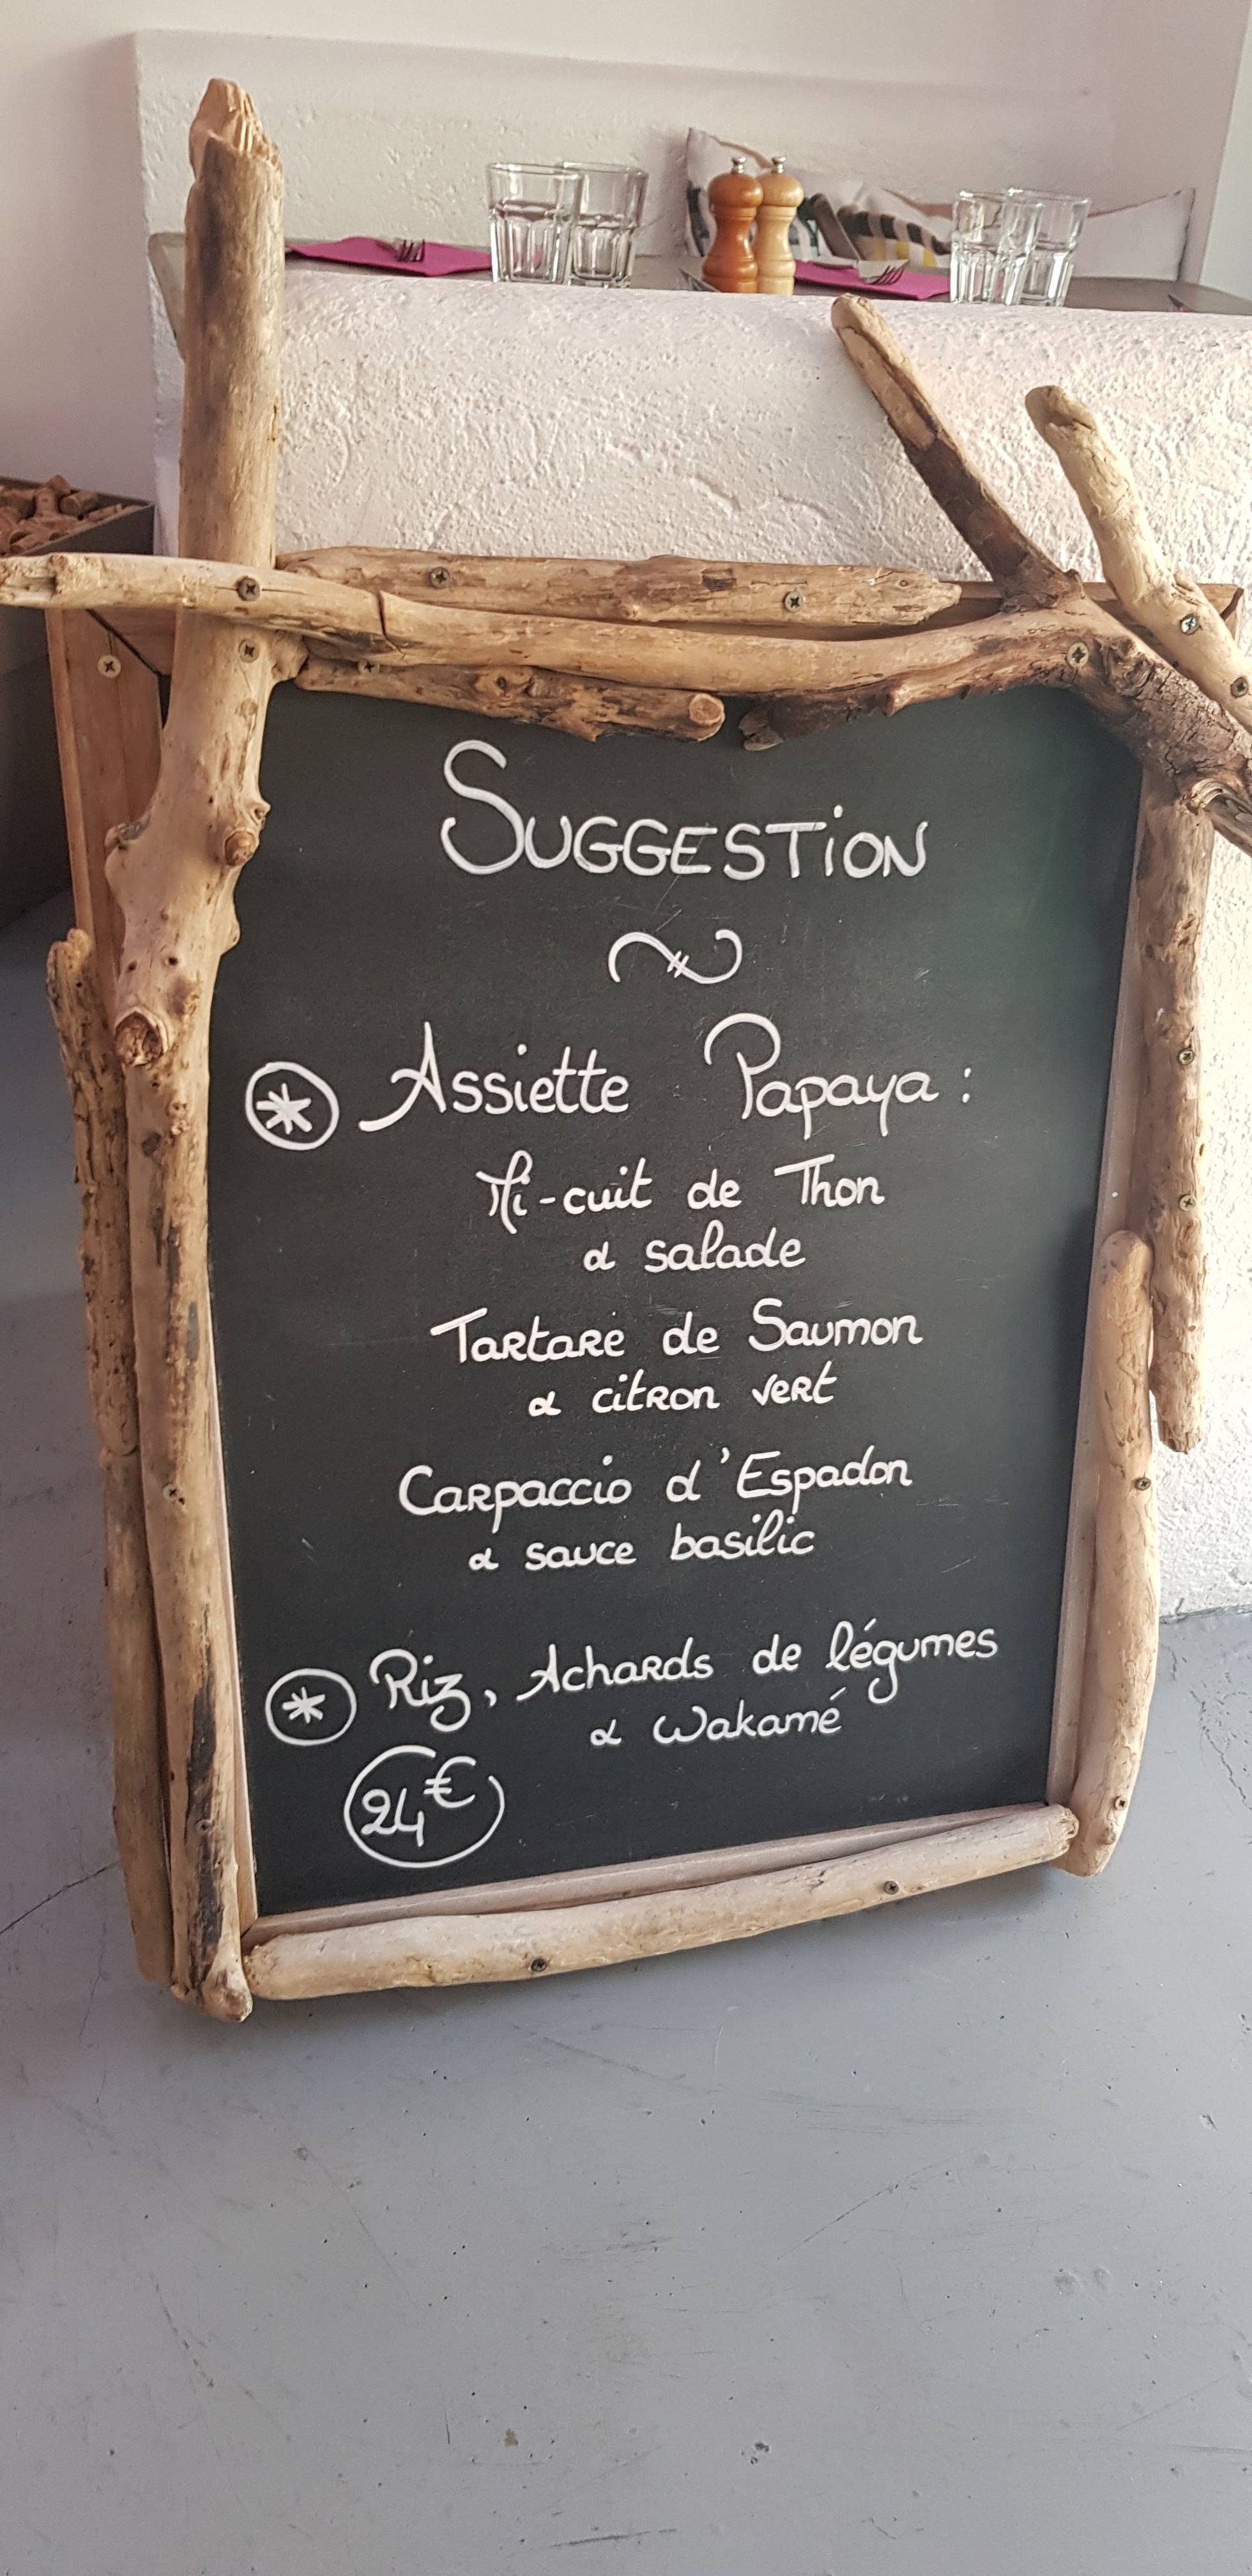 SUGGESTiON
* Assiette Papaya :
Mi-cuit de Thon
& salade
Tartare de Saumon
& citron vert
Carpaccio d'Espadon
& sauce basilic
* Riz, Achards de légumes
& Wakamé
24€